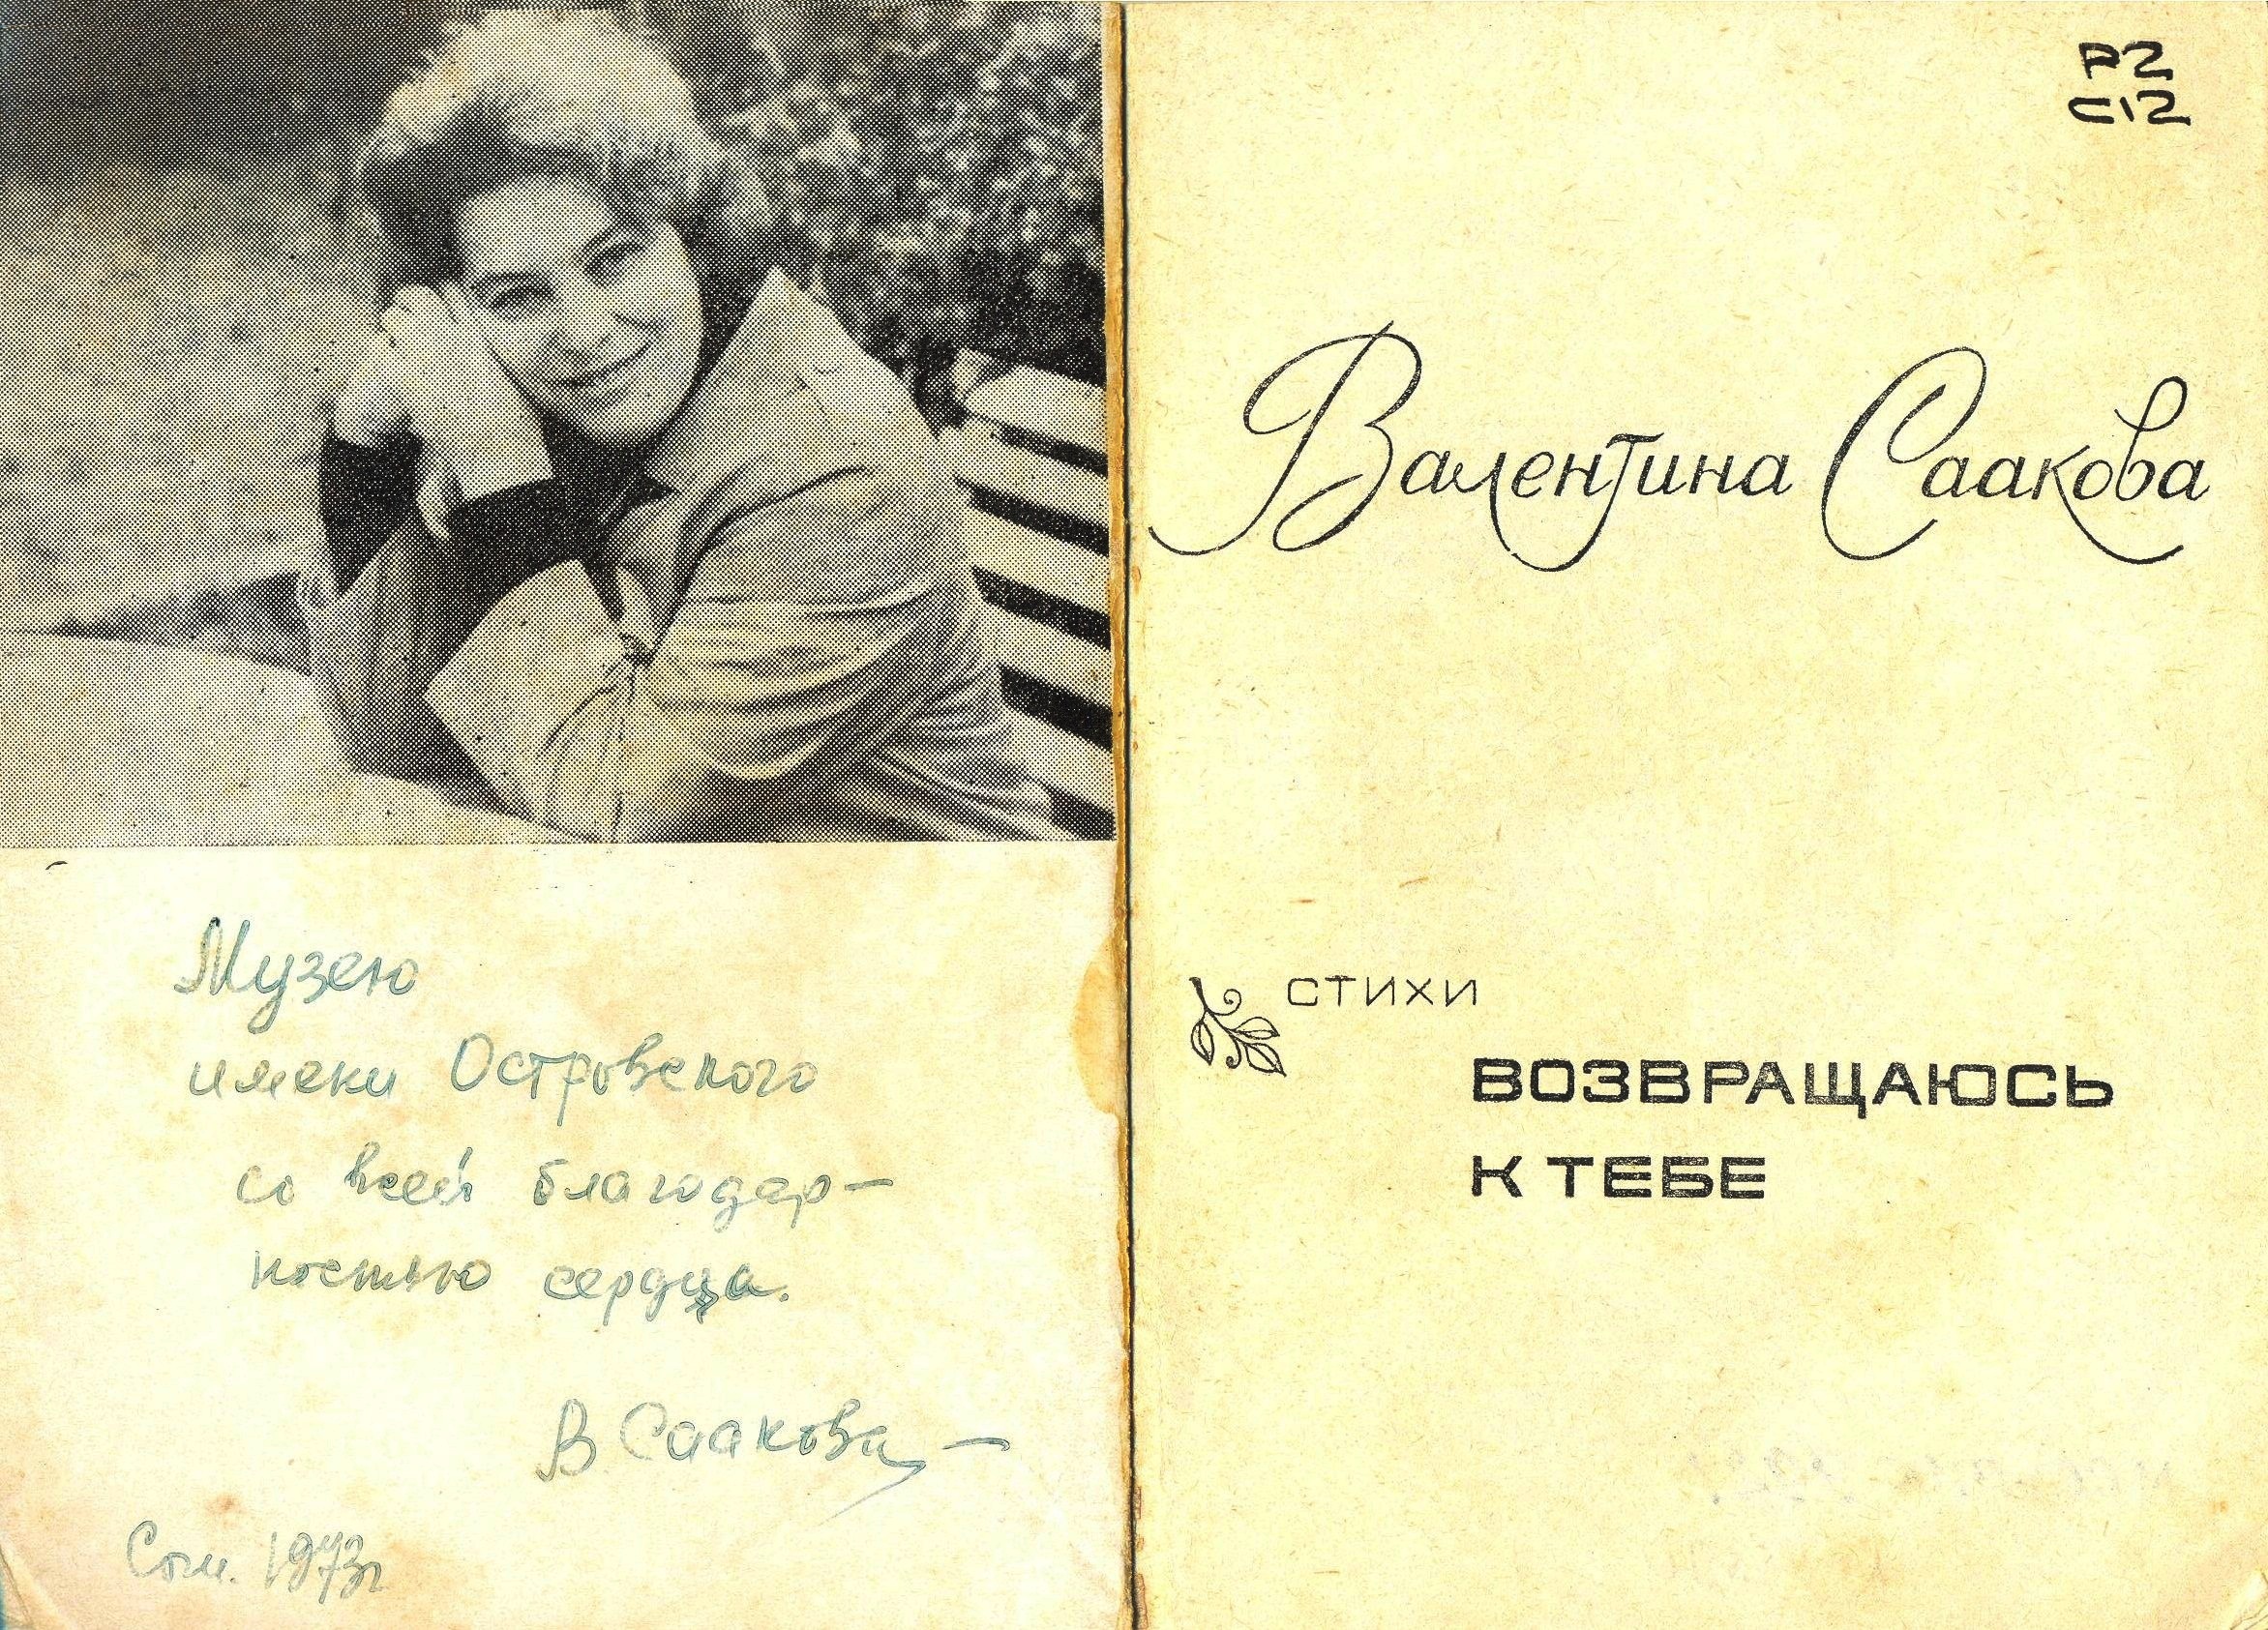 Музею
имени Островского
со всей благодар-
ностью сердца.
В. Саакова
Сочи. 1973г
Р2
С12
Валентина Саакова
СТИХИ
ВОЗВРАЩАЮСЬ
К ТЕБЕ